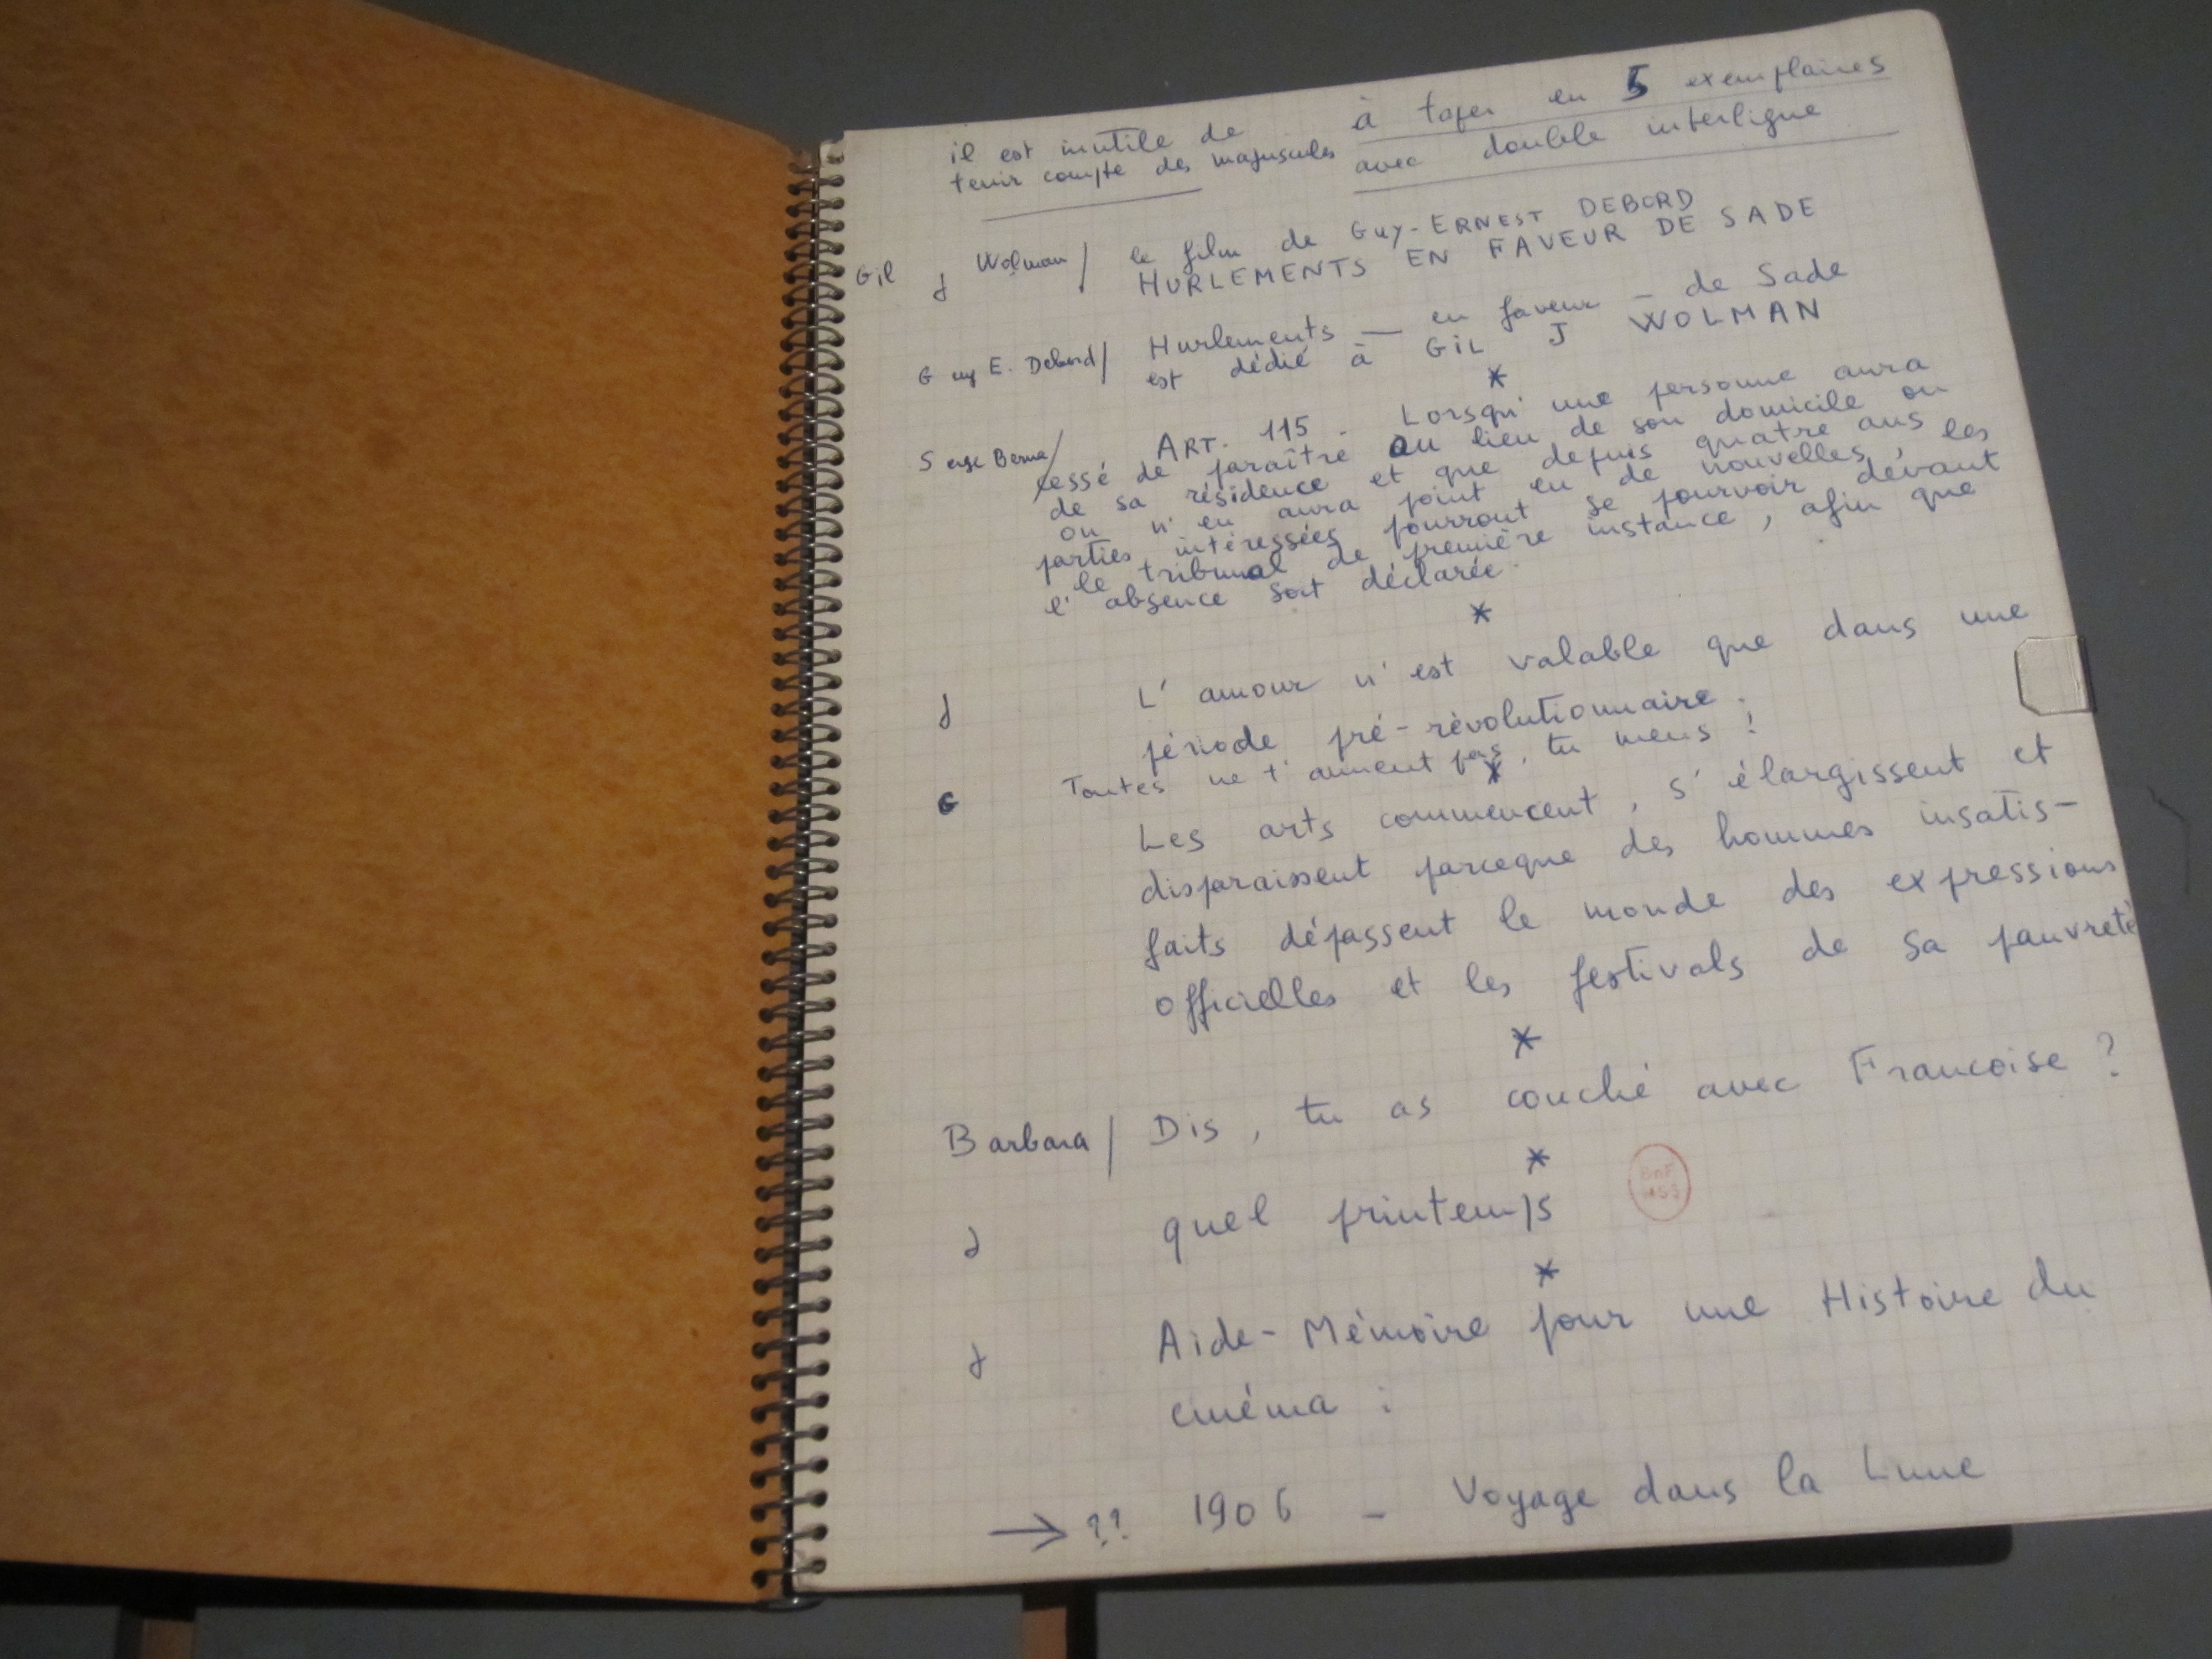 il est inutile de
tenir compte des majuscules
à taper en 5 exemplaires
avec double interligne
Gil J Wolman / le film de GUY-ERNEST DEBORD
HURLEMENTS EN FAVEUR DE SADE
Guy E. Debord / Hurlements — en faveur — de Sade
est dédié à GIL J WOLMAN
*
Serge Berna / ART. 115. Lorsqu'une personne aura
cessé de paraître au lieu de son domicile ou
de sa résidence et que depuis quatre ans
on n'en aura point eu de nouvelles, les
parties intéressées pourront se pourvoir devant
le tribunal de première instance, afin que
l'absence soit déclarée.
*
J L'amour n'est valable que dans une
période pré-révolutionnaire.
G Toutes ne t'aiment pas, tu mens !
*
Les arts commencent, s'élargissent et
disparaissent parceque des hommes insatis-
faits dépassent le monde des expressions
officielles et les festivals de sa pauvreté
*
Barbara / Dis, tu as couché avec Francoise ?
*
J quel printemps
BnF
MSS
*
J Aide-Mémoire pour une Histoire du
cinéma :
→ ?? 1906 - Voyage dans la Lune